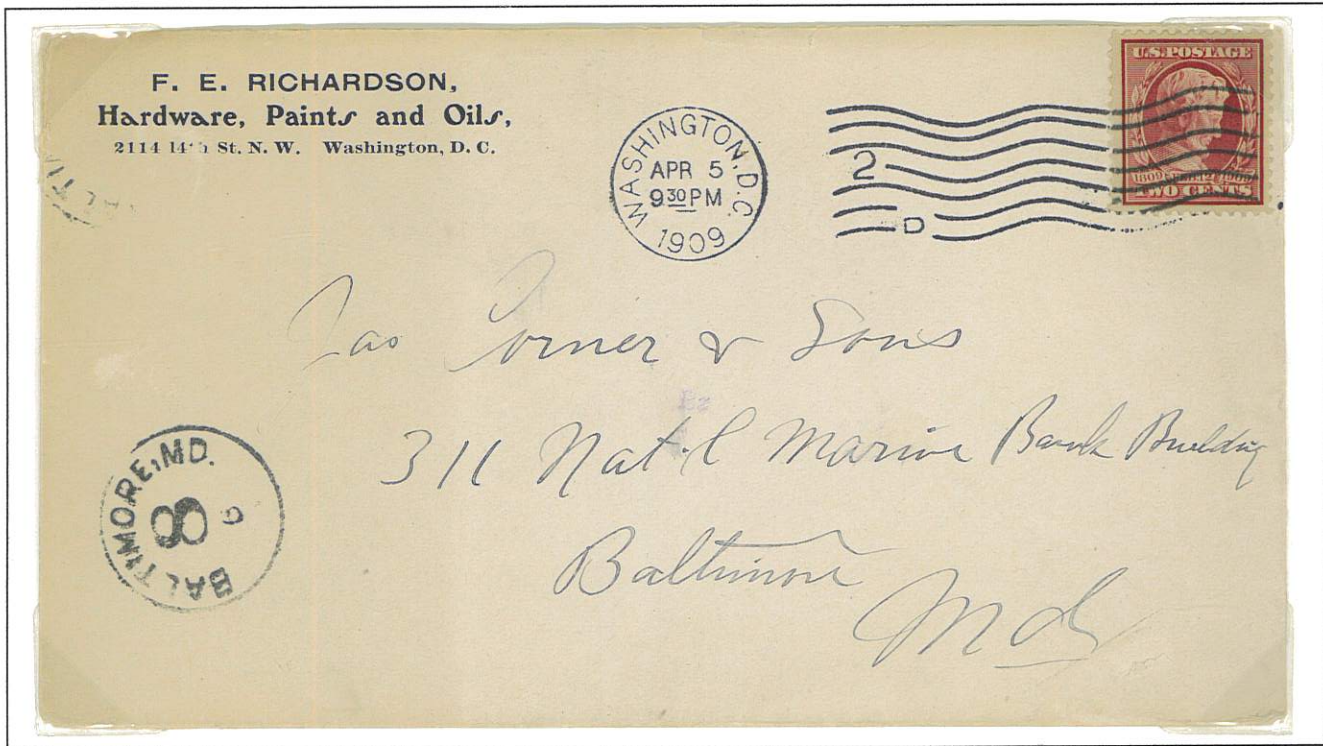 F. E. RICHARDSON,
Hardware, Paints and Oils,
2114 14th St. N. W. Washington, D. C.
ALTI
WASHINGTON, D.C.
APR 5
9 30 PM
1909
2
D
U.S. POSTAGE
1809 FEB. 12 1909
TWO CENTS
Jas Corner & Sons
311 Nat'l Marine Bank Building
Baltimore
Md
BALTIMORE, MD.
8